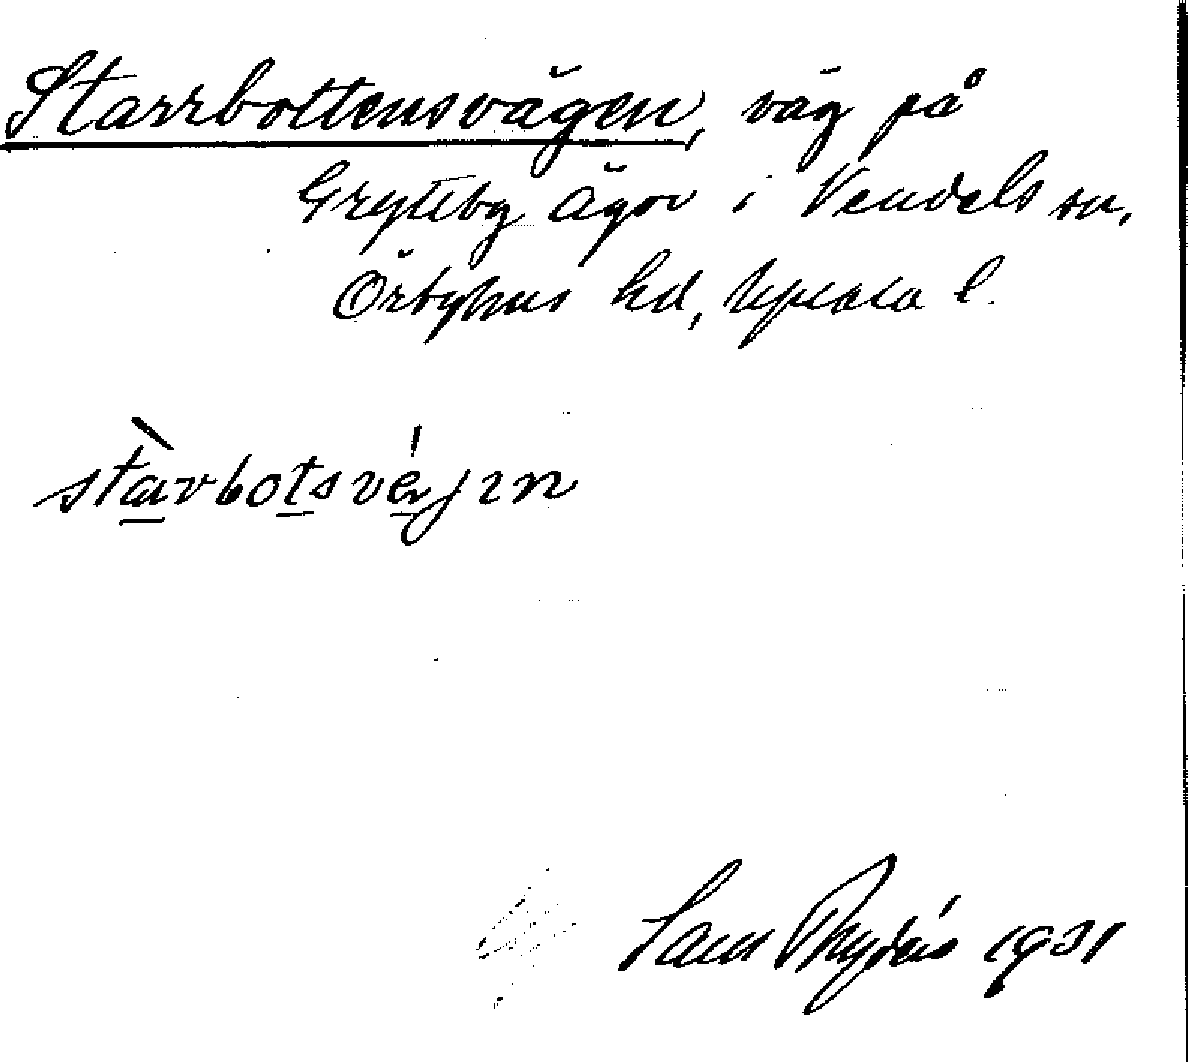 Starrbottensvägen, väg på
Gryttby ägor i Vendels sn,
Örbyhus hd, Upsala l.
stàrbotsvéjın
Sam Thydén 1931